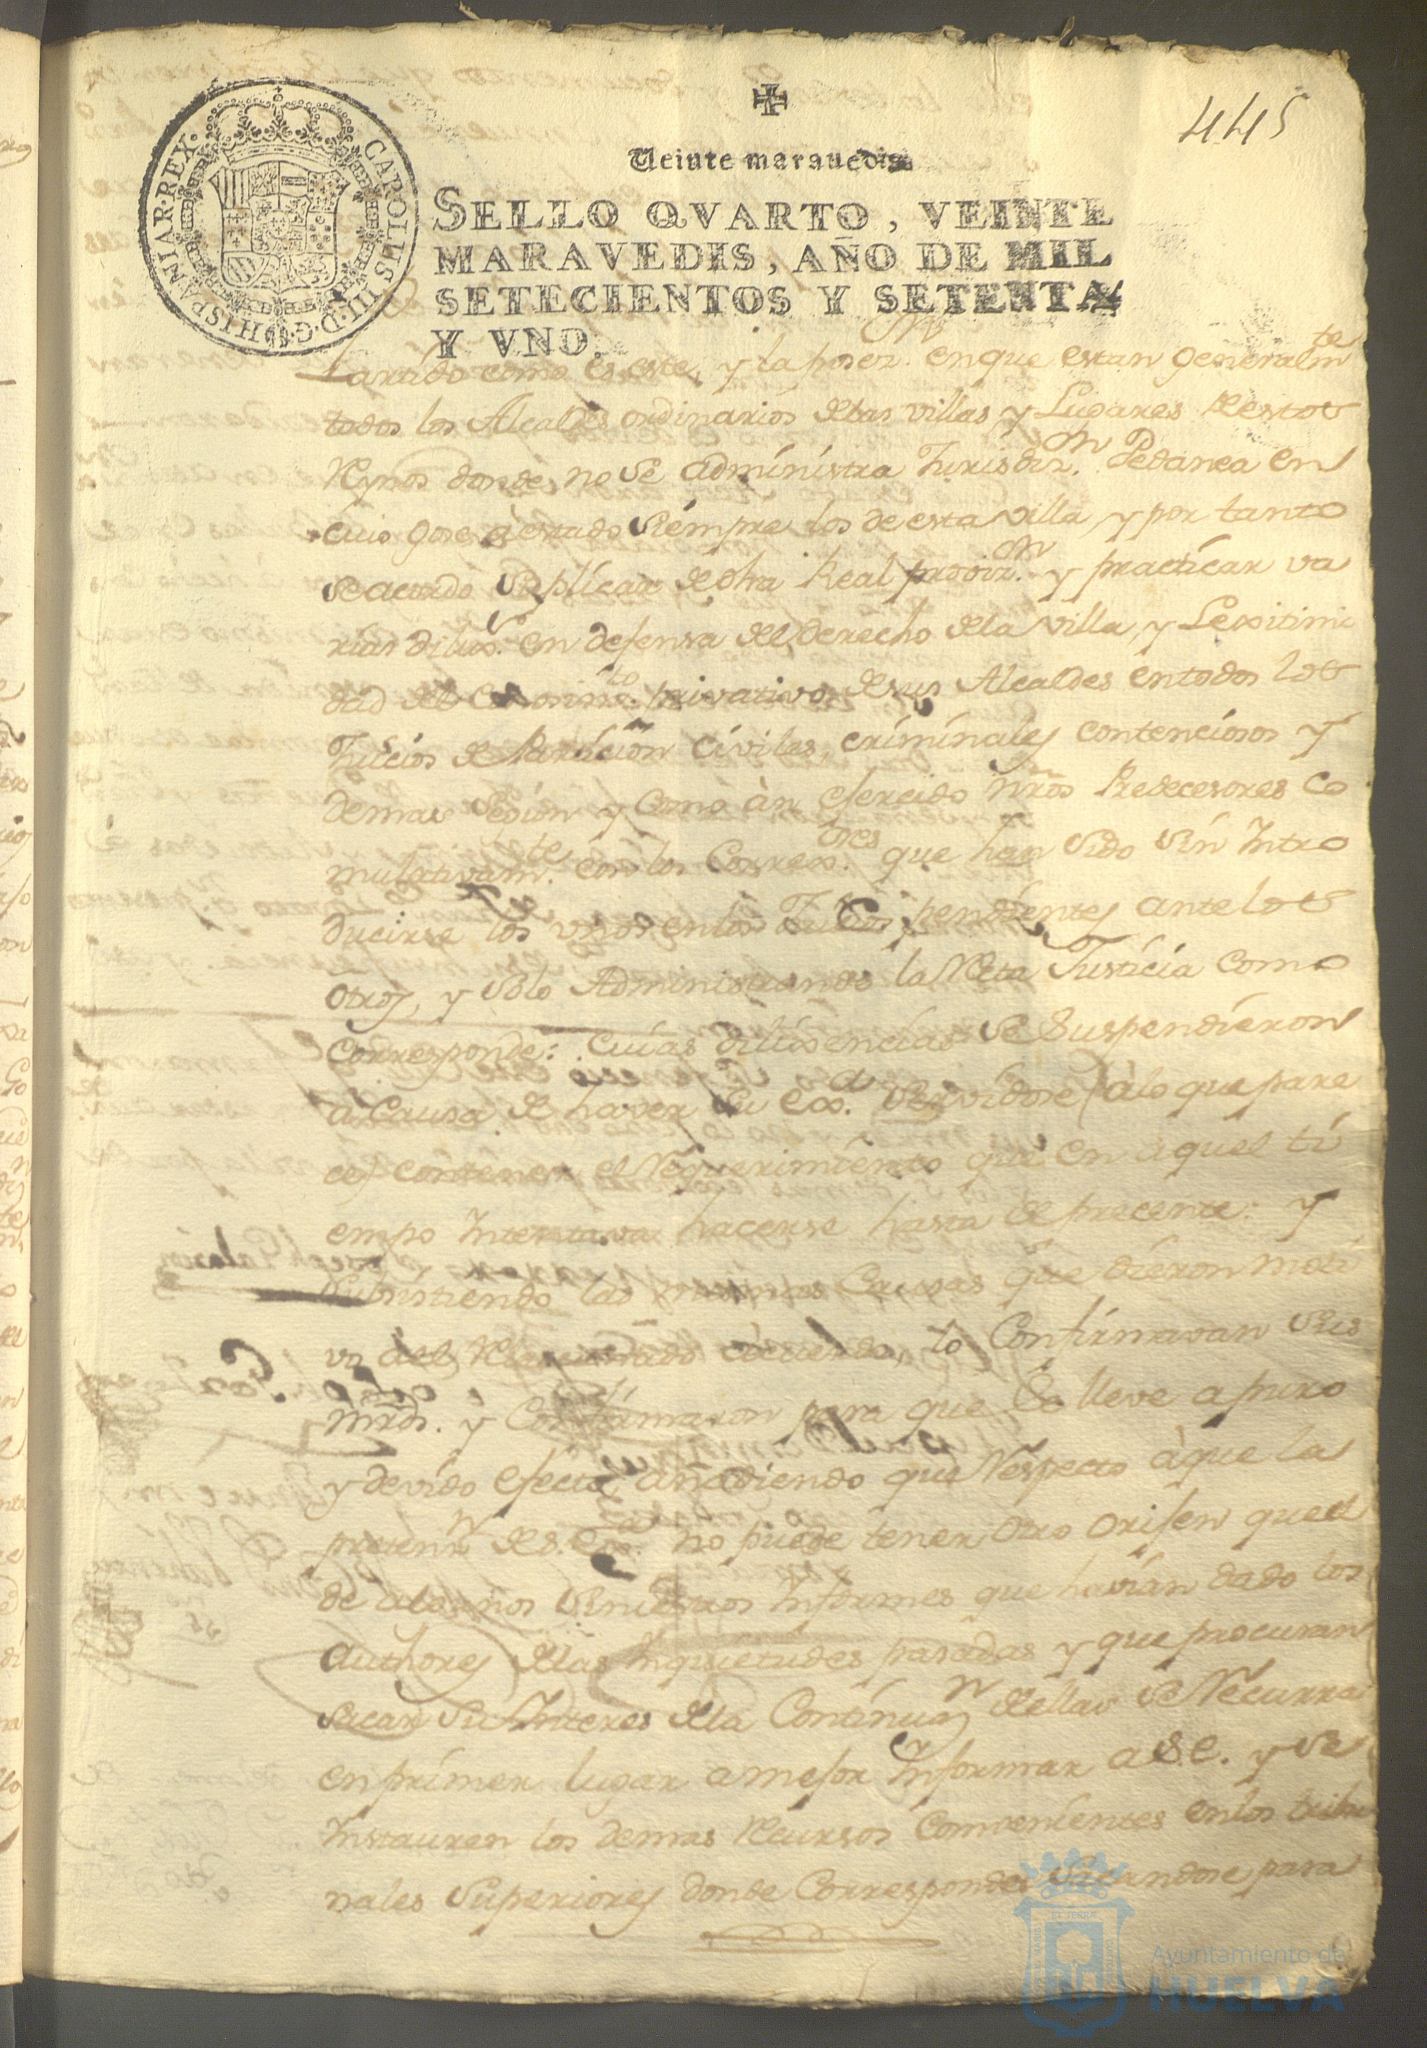 445
Veinte maravedis
SELLO QVARTO, VEINTE
MARAVEDIS, AÑO DE MIL
SETECIENTOS Y SETENTA
Y VNO.
CAROLUS III. D. G. HISPANIAR. REX.
Partido como es este, y la poses.on en que estan generalm.te
todos los Alcaldes ordinarios de las villas y Lugares de estos
Reynos donde no se administra Jurisdiz.on Pedanea en
cuio gose à estado siempre los de esta villa y por tanto
se acordo suplicar de dha Real provis.on y practicar va
rias dilixs. en defensa del derecho de la villa, y Lexitimi
dad del Conosim.to privativo de sus Alcaldes en todos los
Juicios de Partición civiles, criminales contenciosos y
demas segun y como àn ejercido nros Predecesores co
mulativam.te con los Correx.res que han sido sin Intro
ducirse los unos en los Juicios pendientes ante los
otros, y solo Administrando la Recta Justicia como
corresponde: Cuias dilixencias se suspendieron
a causa de haver su Ex.a servidose (à lo que pare
ce) contener el Requerimiento que en aquel ti
empo Intentava hacerse hasta de precente: y
subsistiendo las mismas Causas que dieron moti
vo del relacionado acuerdo, lo Confirmavan sus
mrds. y Confirmaron para que se lleve a puro
y devido efecto, añadiendo que Respecto àque la
preten.n de S. Ex.a no puede tener otro orijen que el
de algunos siniestros Informes que havian dado los
authores de las Inquietudes pasadas y que procuran
sacar su Interes de la Continua.n de ellas se Recurra
en primer lugar a mejor Informar a S.E. y se
Instauren los demas Recursos Convenientes en los tribu
nales Superiores donde Corresponde, sacandose para
Ayuntamiento de
HUELVA